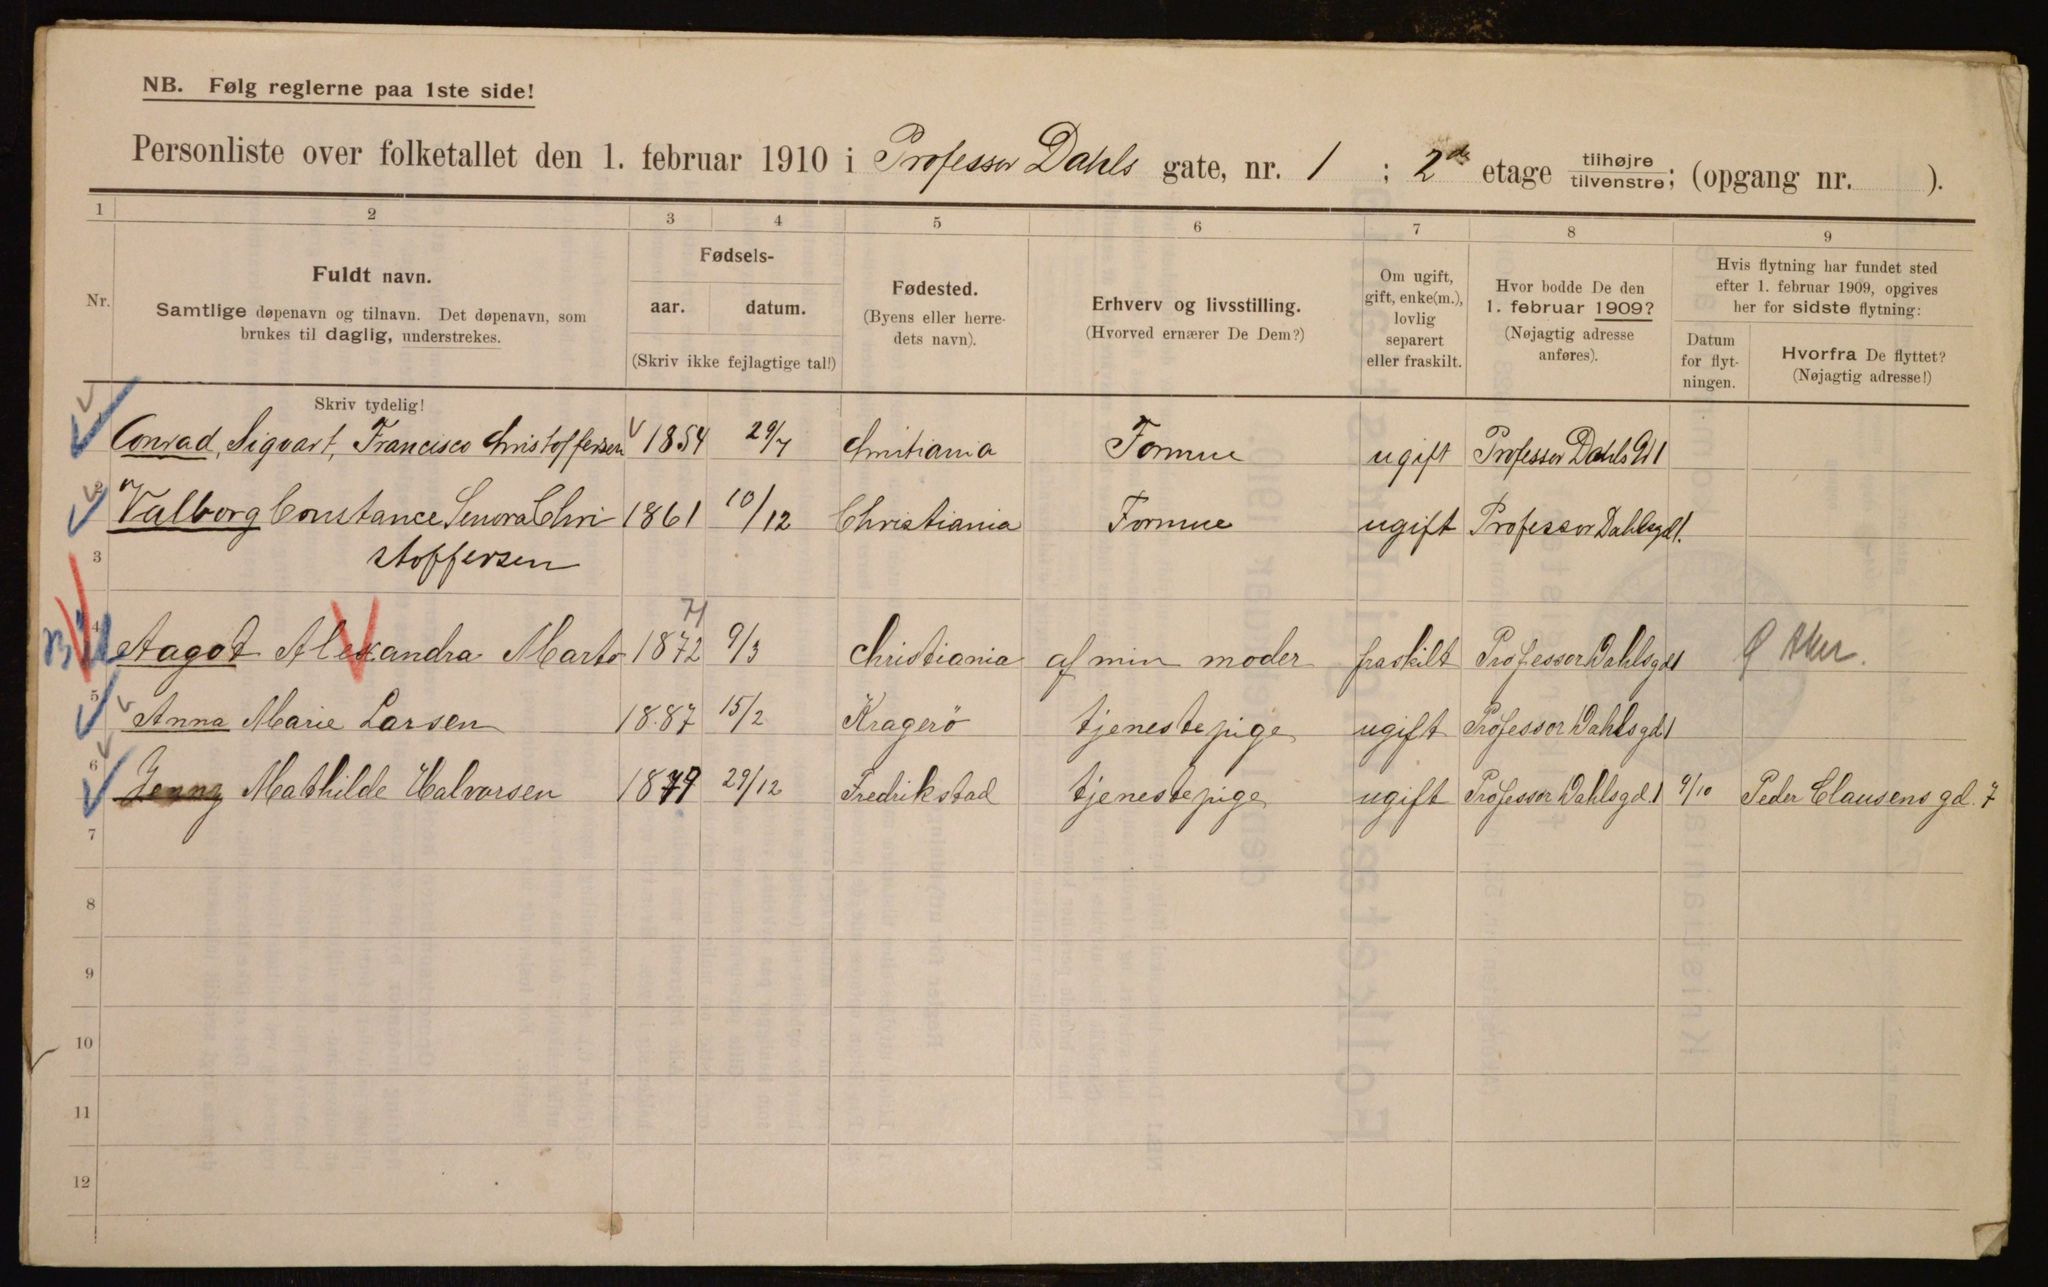 NB. Følg reglerne paa 1ste side!
Personliste over folketallet den 1. februar 1910 i Professor Dahls gate, nr. 1 ; 2de etage tilhøjre/tilvenstre; (opgang nr. ).
1 2 3 4 5 6 7 8 9
Nr.
Fuldt navn.
Samtlige døpenavn og tilnavn. Det døpenavn, som
brukes til daglig, understrekes.
Skriv tydelig!
Fødsels-
aar. datum.
(Skriv ikke fejlagtige tal!)
Fødested.
(Byens eller herre-
dets navn).
Erhverv og livsstilling.
(Hvorved ernærer De Dem?)
Om ugift,
gift, enke(m.),
lovlig
separert
eller fraskilt.
Hvor bodde De den
1. februar 1909?
(Nøjagtig adresse
anføres).
Hvis flytning har fundet sted
efter 1. februar 1909, opgives
her for sidste flytning:
Datum
for flyt-
ningen.
Hvorfra De flyttet?
(Nøjagtig adresse!)
Conrad, Sigvart, Francisco Christoffersen 1854 29/7 Christiania Formue ugift Professor Dahls Gd 1
2 Valborg Constance Senora Chri 1861 10/12 Christiania Formue ugift Professor Dahlsgd 1.
3 stoffersen
71
4 Aagot Alexandra Marto 1872 9/3 Christiania af min moder fraskilt Professor Dahlsgd 1 Aker.
5 Anna Marie Larsen 1887 15/2 Kragerö tjenestepige ugift Professor Dahlsgd 1
6 Jenny Mathilde Halvorsen 1879 29/12 Fredrikstad tjenestepige ugift Professor Dahlsgd. 1 9/10 Peder Clausens gd. 7
7
8
9
10
11
12